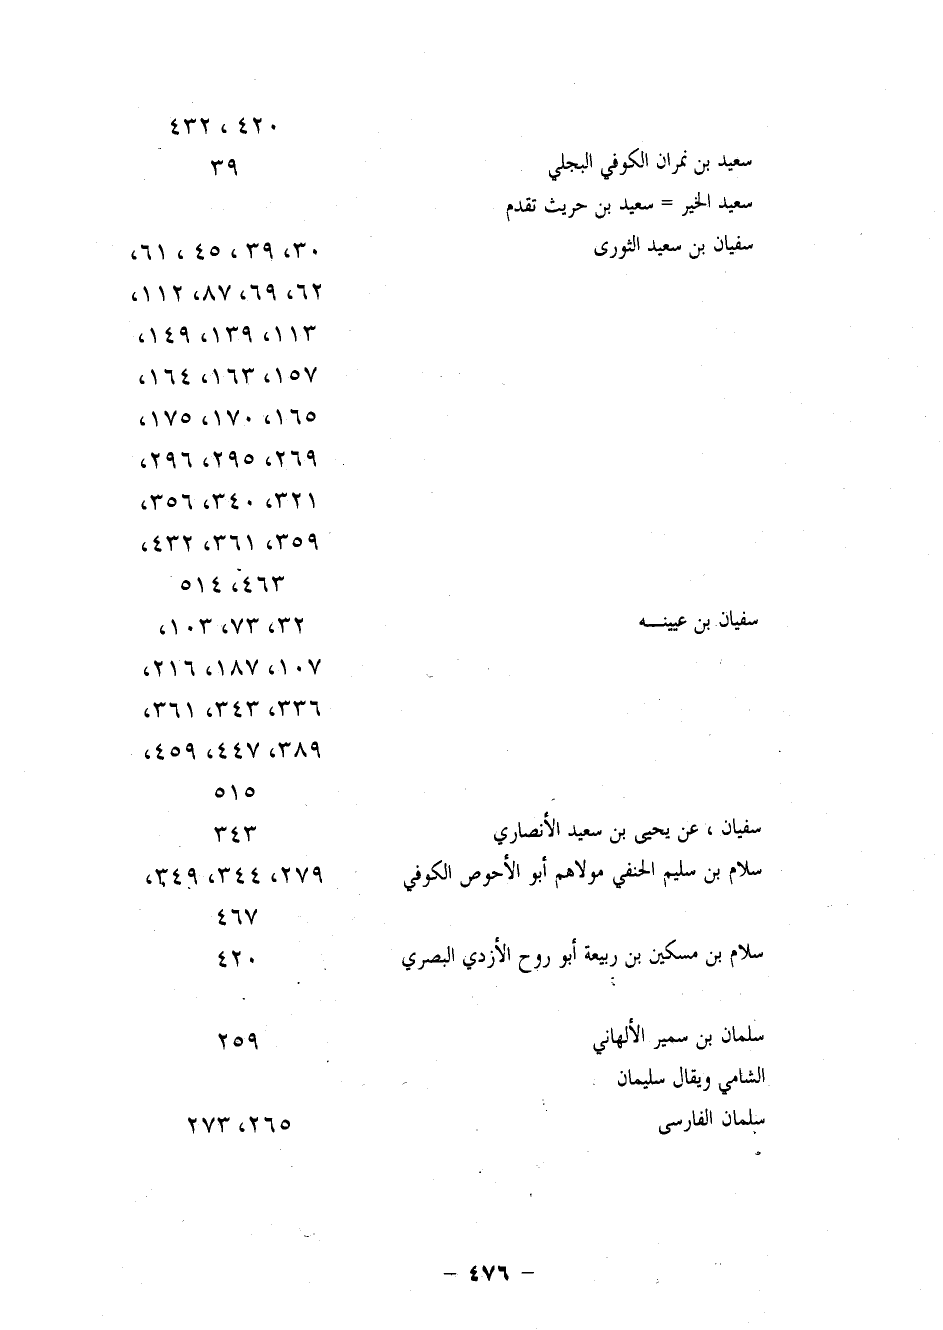 ٤٢٠ ، ٤٣٢
سعيد بن نمران الكوفي البجلي ٣٩
سعيد الخير = سعيد بن حريث تقدم
سفيان بن سعيد الثورى ٣٠، ٣٩، ٤٥ ، ٦١،
٦٢، ٦٩، ٨٧، ١١٢،
١١٣، ١٣٩، ١٤٩،
١٥٧، ١٦٣، ١٦٤،
١٦٥، ١٧٠، ١٧٥،
٢٦٩، ٢٩٥، ٢٩٦،
٣٢١، ٣٤٠، ٣٥٦،
٣٥٩، ٣٦١، ٤٣٢،
٤٦٣، ٥١٤
سفيان بن عيينـــه ٣٢، ٧٣، ١٠٣،
١٠٧، ١٨٧، ٢١٦،
٣٣٦، ٣٤٣، ٣٦١،
٣٨٩، ٤٤٧، ٤٥٩،
٥١٥
سفيان ، عن يحيى بن سعيد الأنصاري ٣٤٣
سلام بن سليم الحنفي مولاهم أبو الأحوص الكوفي ٢٧٩، ٣٤٤، ٣٤٩،
٤٦٧
سلام بن مسكين بن ربيعة أبو روح الأزدي البصري ٤٢٠
سلمان بن سمير الألهاني ٢٥٩
الشامي ويقال سليمان
سلمان الفارسى ٢٦٥، ٢٧٣
– ٤٧٦ –